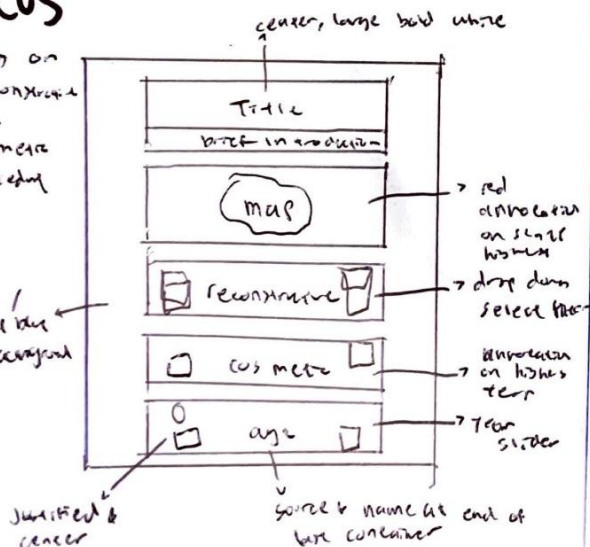 cos
on
center, large bold white
Title
brief introduction
map
red
annotation
on state
highest
reconstructive
drop down
select filter
cosmetic
annotation
on highest
age
year
slider
justified &
center
source & name at end of
last container